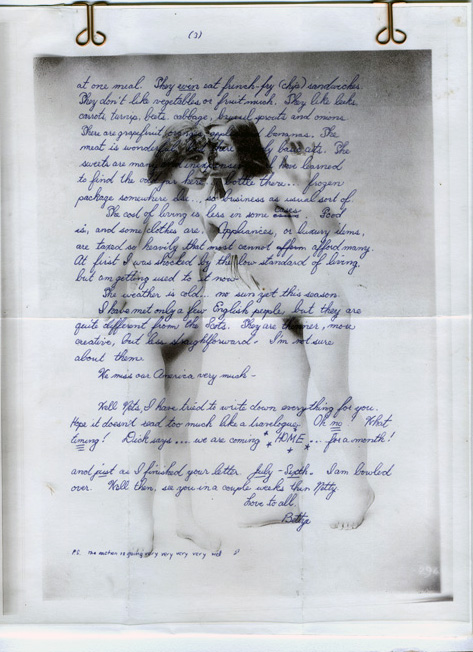 (3)
at one meal. They even eat french-fry (chip) sandwiches.
They don't like vegetables or fruit much. They like leeks,
carrots, turnip, beets, cabbage, brussel sprouts and onions.
There are grapefruit, oranges, bananas. The
meat is wonderful The
sweets are many and inexpensive have learned
to find the here, bottle there... frozen
package somewhere else... so business as usual sort of.
The cost of living is less in some cases. Food
is, and some clothes are. Appliances, or luxury items,
are taxed so heavily that most cannot afford many.
At first I was shocked by the low standard of living.
but am getting used to it now.
The weather is cold... no sun yet this season.
I have met only a few English people, but they are
quite different from the Scots. They are thinner, more
creative, but less straightforward - I'm not sure
about them.
We miss our America very much -
Well Nets, I have tried to write down everything for you.
Hope it doesn't read too much like a travelogue. Oh no What
timing! Dick says... we are coming *HOME*... for a month!
and just as I finished your letter. July - Septh. I am bowled
over. Well then, see you in a couple weeks then Netty
Love to all,
Bettze
P.S. the mother is going very very very very well
296